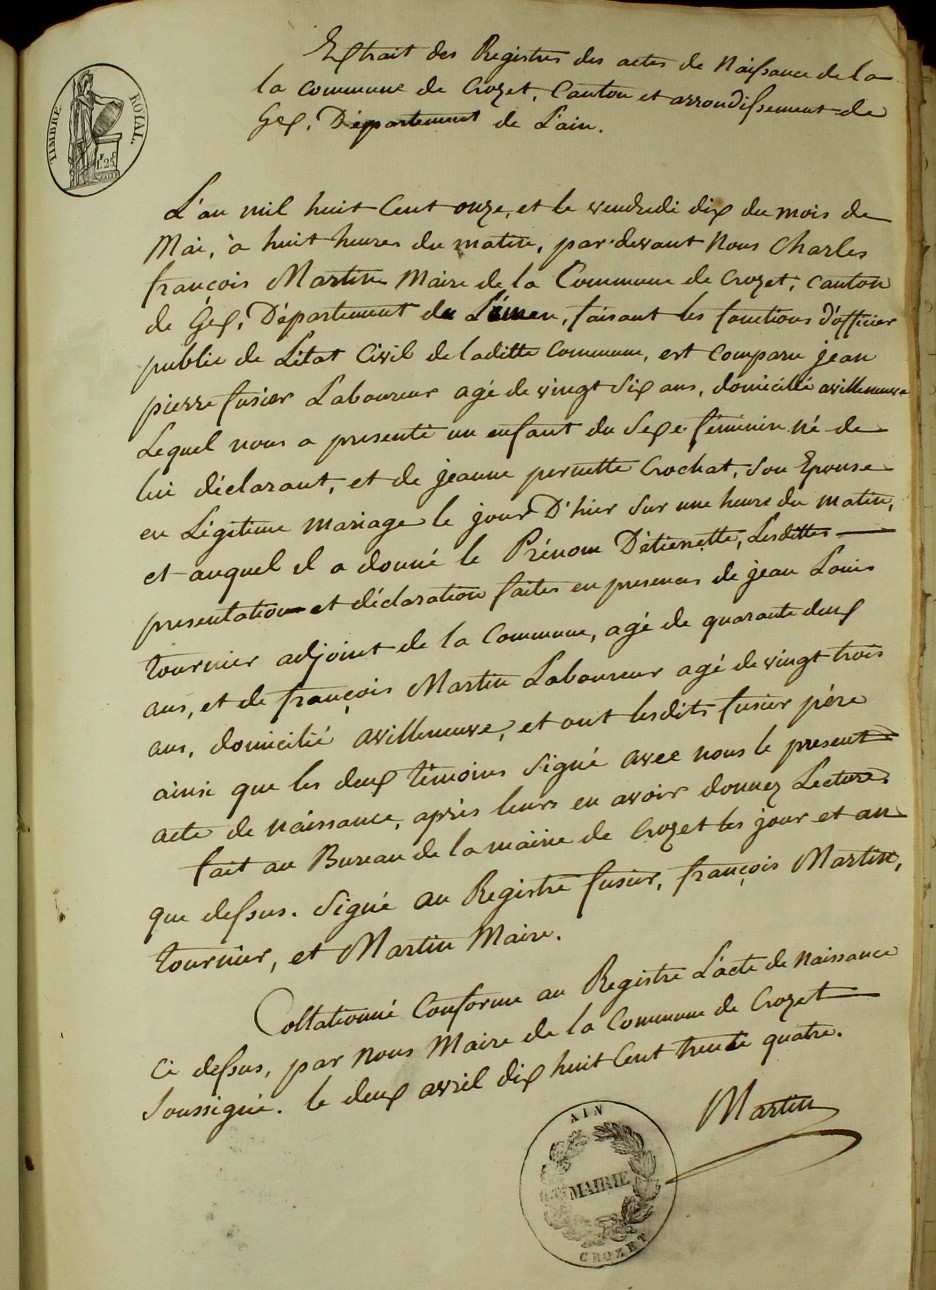 TIMBRE ROYAL.
Extrait des Registres des actes de Naissance de la
la commune de Crozet, Canton et arrondissement de
Gex, Département de L'ain.
L'an mil huit Cent onze, et le vendredi dix du mois de
Mai, à huit heures du matin, par devant Nous Charles
françois Martin Maire de la Commune de Crozet, Canton
de Gex, Département du Léman, faisant les fonctions d'officier
public de L'état Civil de laditte Commune, est comparu jean
pierre fusier Laboureur agé de vingt six ans, domicilié avilleneuve
Lequel nous a presenté un enfant du Sexe féminin né de
lui déclarant, et de jeanne pernette Crochat, Son Epouse
en Légitime mariage le jour D'hier sur une heure du matin,
et auquel il a donné le Prénom D'étiennette, Lesdittes
presentation et déclaration faites en presences de jean Louis
tournier adjoint de la Commune, agé de quarante deux
ans, et de françois Martin Laboureur agé de vingt trois
ans, domicilié avilleneuve, et ont lesdits fusier père
ainsi que les deux témoins Signé avec nous le present
acte de naissance, après leurs en avoir donnez Lecture.
fait au Bureau de la mairie de Crozet les jour et an
que dessus. Signé au Registre fusier, françois Martin,
tournier, et Martin Maire.
Collationné Conforme au Registre L'acte de Naissance
Ci dessus, par nous Maire de la Commune de Crozet
Soussigné. le deux avril dix huit Cent trente quatre.
Martin
AIN
MAIRIE
CROZET